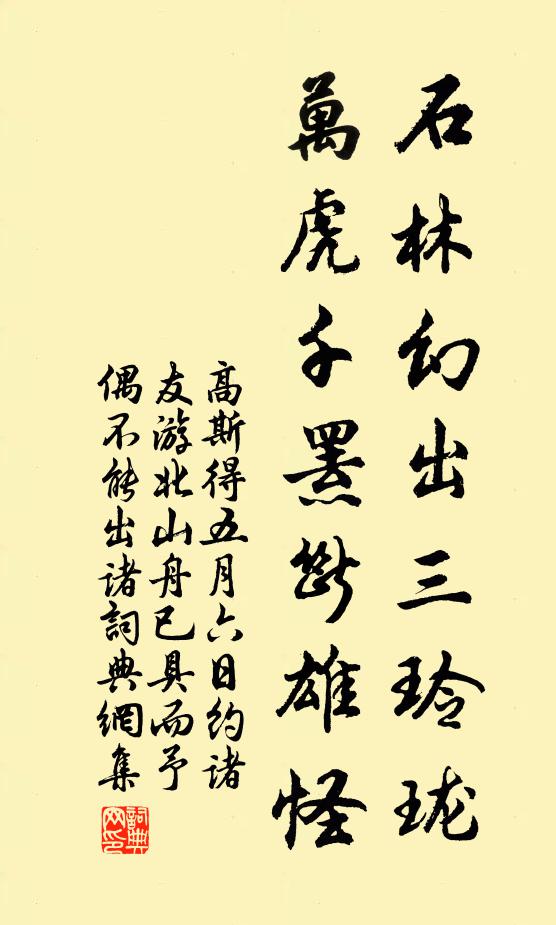 石林幻出三玲珑
萬虎千罴雄怪
高斯得五月六日约诸
友游北山舟已具而予
偶不能出诸詞典網集
詞典
网印